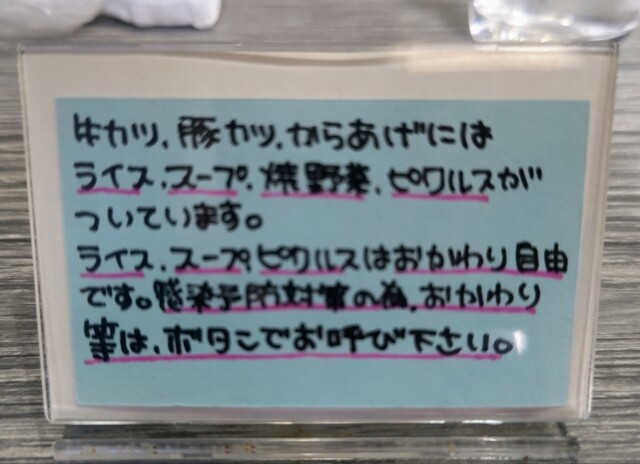 牛カツ、豚カツ、からあげには
ライス、スープ、焼野菜、ピクルスが
ついています。
ライス、スープ、ピクルスはおかわり自由
です。感染予防対策の為、おかわり
等は、ボタンでお呼び下さい。